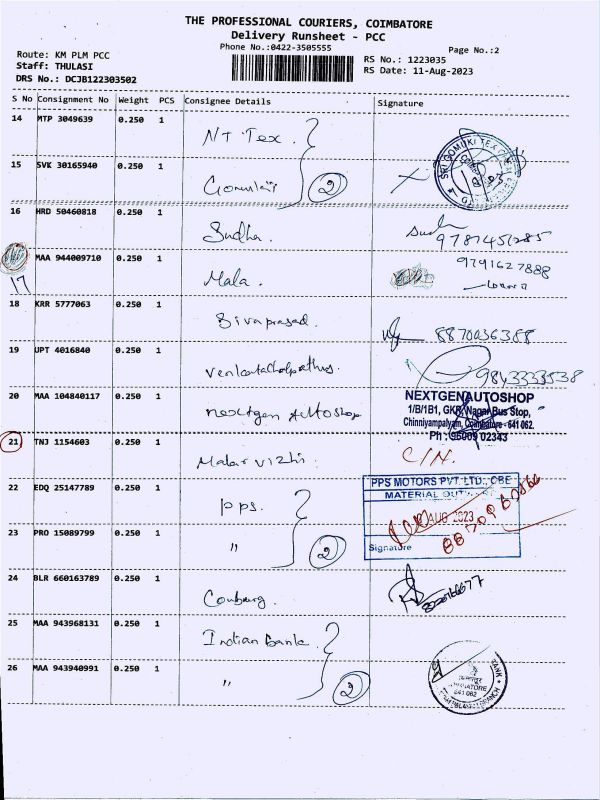 THE PROFESSIONAL COURIERS, COIMBATORE
Delivery Runsheet - PCC
Phone No.:0422-3505555
Page No.:2
Route: KM PLM PCC
Staff: THULASI
DRS No.: DCJB122303502
RS No.: 1223035
RS Date: 11-Aug-2023
S No Consignment No Weight PCS Consignee Details Signature
14 MTP 3049639 0.250 1 NT Tex.
15 SVK 30165940 0.250 1 2
16 HRD 50460818 0.250 1 Sudha.
17 MAA 944009710 0.250 1 Mala. 9791627888
18 KRR 5777063 0.250 1 Sivaprasad. 8870036388
19 UPT 4016840 0.250 1 9843333538
20 MAA 104840117 0.250 1 nextgen Autoshop
NEXTGENAUTOSHOP
1/B/1B1, GKR Nagar Bus Stop,
Chinniyampalyam, Coimbatore - 641 062.
Ph : 96009 02343
21 TNJ 1154603 0.250 1 Malar vizhi C/N.
22 EDQ 25147789 0.250 1 pps.
PPS MOTORS PVT. LTD., CBE
MATERIAL
AUG 2023
Signature
23 PRO 15089799 0.250 1 " 2
24 BLR 660163789 0.250 1
25 MAA 943968131 0.250 1 Indian Bank.
26 MAA 943940991 0.250 1 " 2
641 062